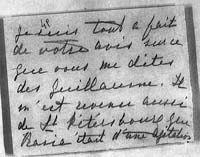 je suis tout à fait
de votre avis sur ce
que vous me dites
des Guillaume. Il
m'est revenu aussi
de St Pétersbourg que
était d'une